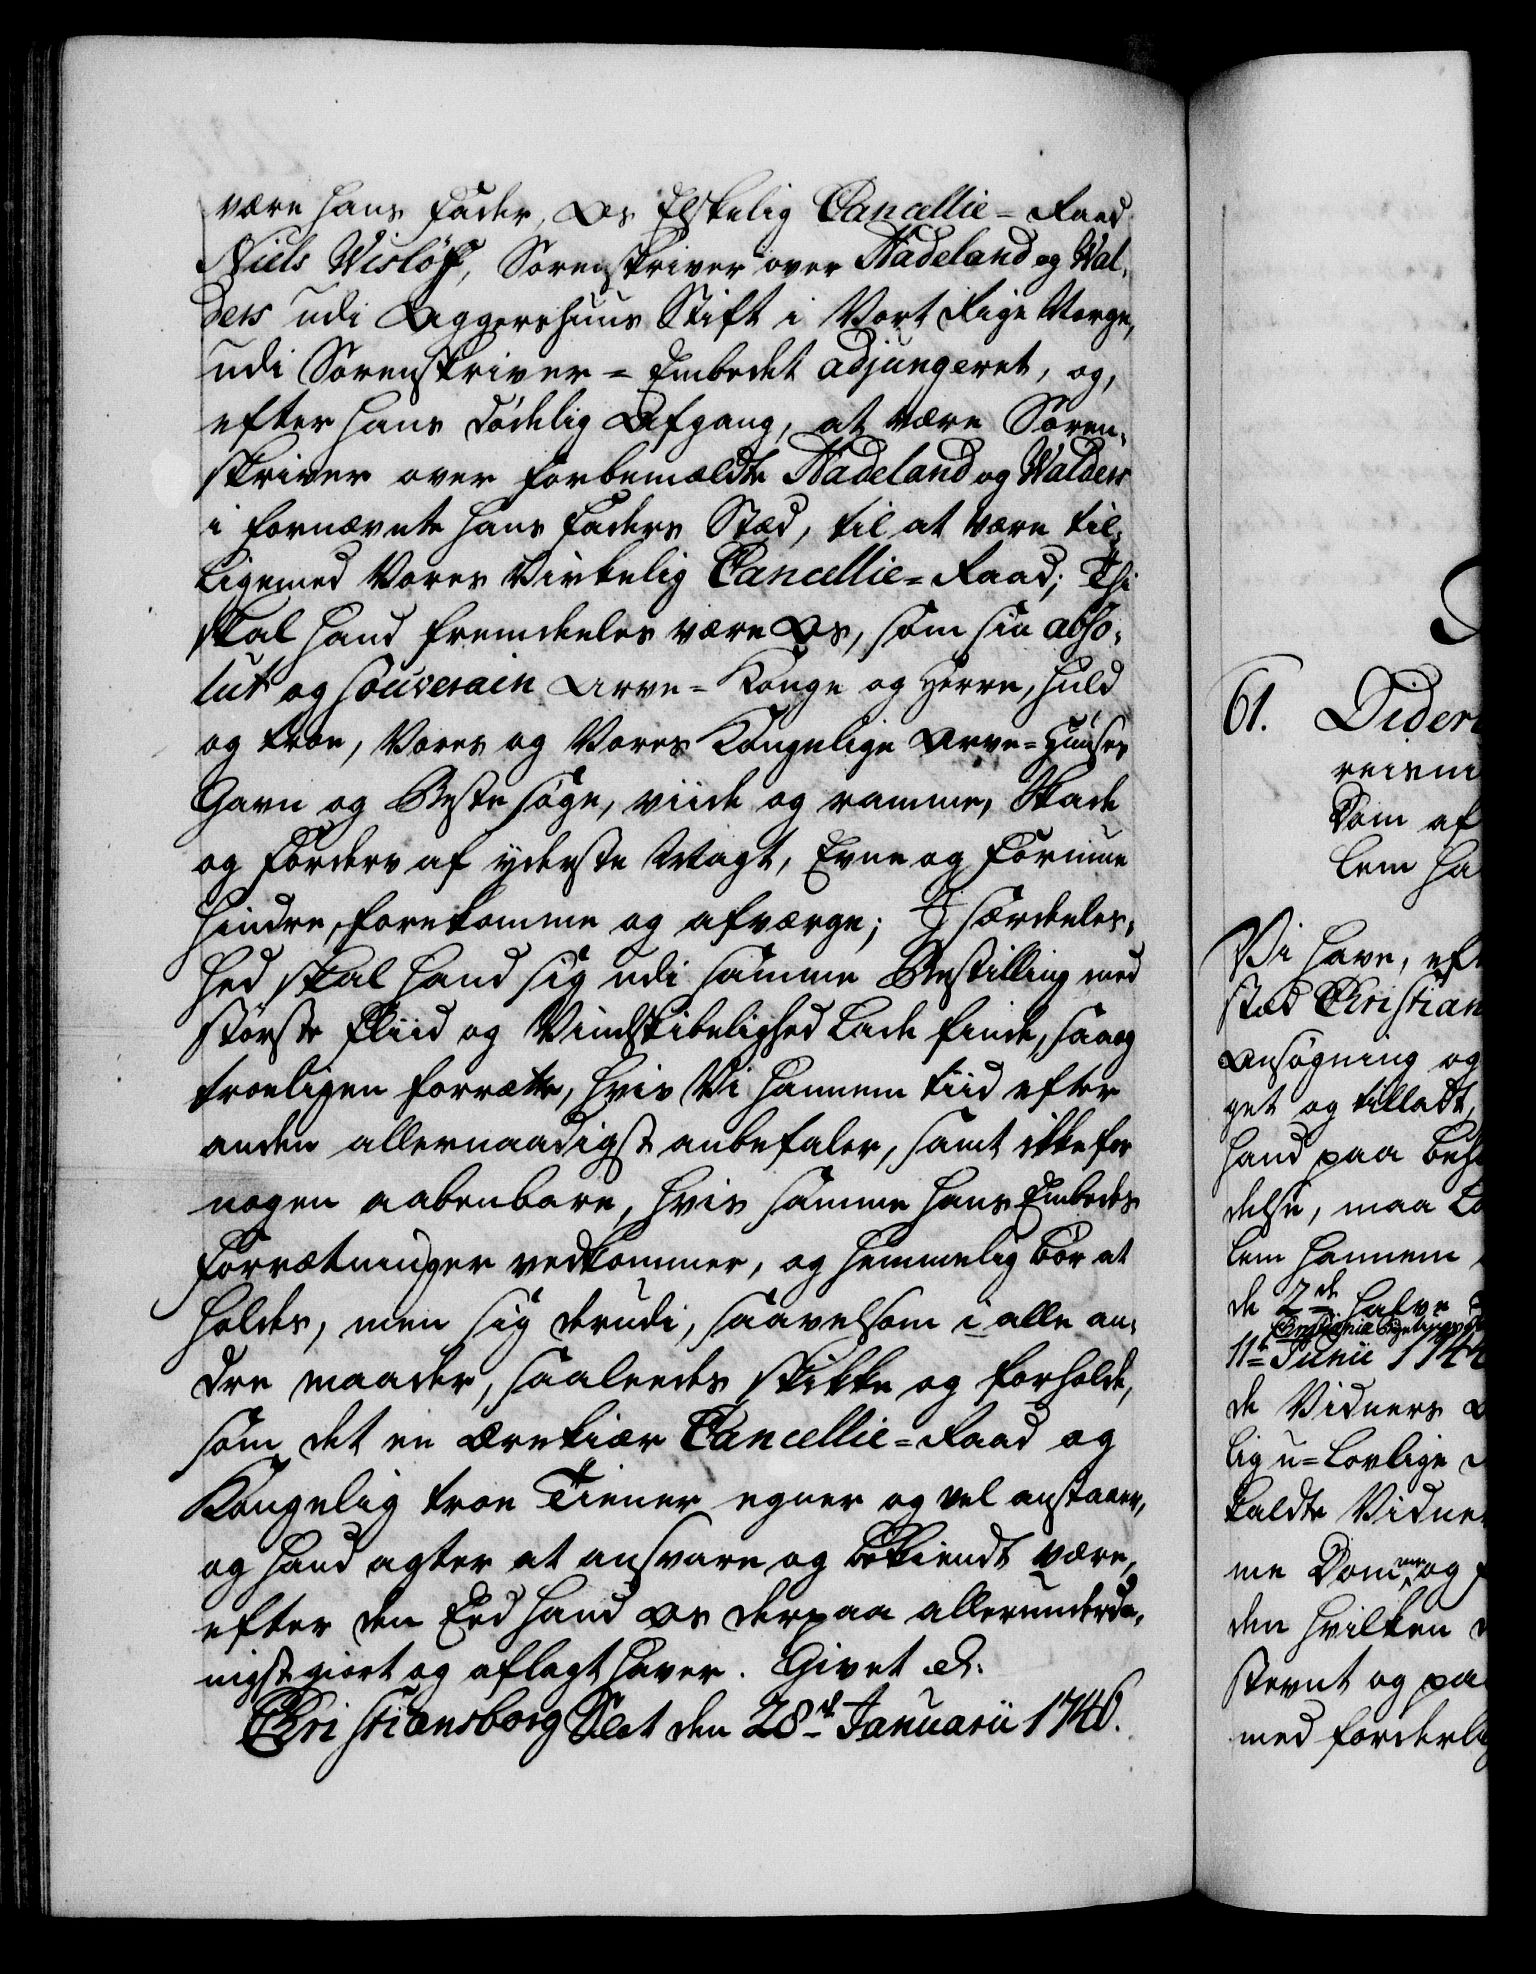 være hans Fader, Os Elskelig Cancellie-Raad
Niels Wisløf, Sorenskriver over Hadeland og Wal-
ders udi Aggershuus Stift i Vort Rige Norge,
udi Sorenskriver-Embedet adjungeret, og,
efter hans dødelig Afgang, at være Soren-
skriver over forbemældte Hadeland og Walders
i fornævnte hans Faders Stæd, til at være til-
ligemed Vores Virkelig Cancellie-Raad; Thi
skal hand fremdeeles være Os, som sin abso-
lut og souverain Arve-Konge og Herre, huld
og troe, Vores og Vores Kongelige Arve-Huuses
Gavn og Beste søge, viide og ramme, Skade
og Forderv af yderste Magt, Evne og Formue
hindre, forekomme og afværge; J særdeles-
hed skal hand sig udi samme Bestilling med
største Fliid og Vindskibelighed lade finde, saa og
troeligen forrætte, hvis Vi hannem tiid efter
anden allernaadigst anbefaler, samt ikke for
nogen aabenbare, hvis samme hans Embedes
Forrætninger vedkommer, og hemmelig bør at
holdes, men sig derudi, saavelsom i alle an-
dre maader, saaleedes skikke og forholde,
som det en ærekiær Cancellie-Raad og
Kongelig troe Tiener egner og vel anstaaer,
og hand agter at ansvare og bekiendt være,
efter den Eed hand Os derpaa allerunderda-
nigst giort og aflagt haver. Givet &c.
Christiansborg Slot den 28de Januarii 1746.
61. Dideri
Dom af
lem ha
Vi have, eft
stæd Christian
Ansøgning og
get og tilladt,
hand paa
delse, maa
lem hannem
de 2de halve
11te Junii 174
de Vidners
lig u-lovlige
kaldte Vidne
me Dom og
den hvilken
stevnt og paa
med forderlig